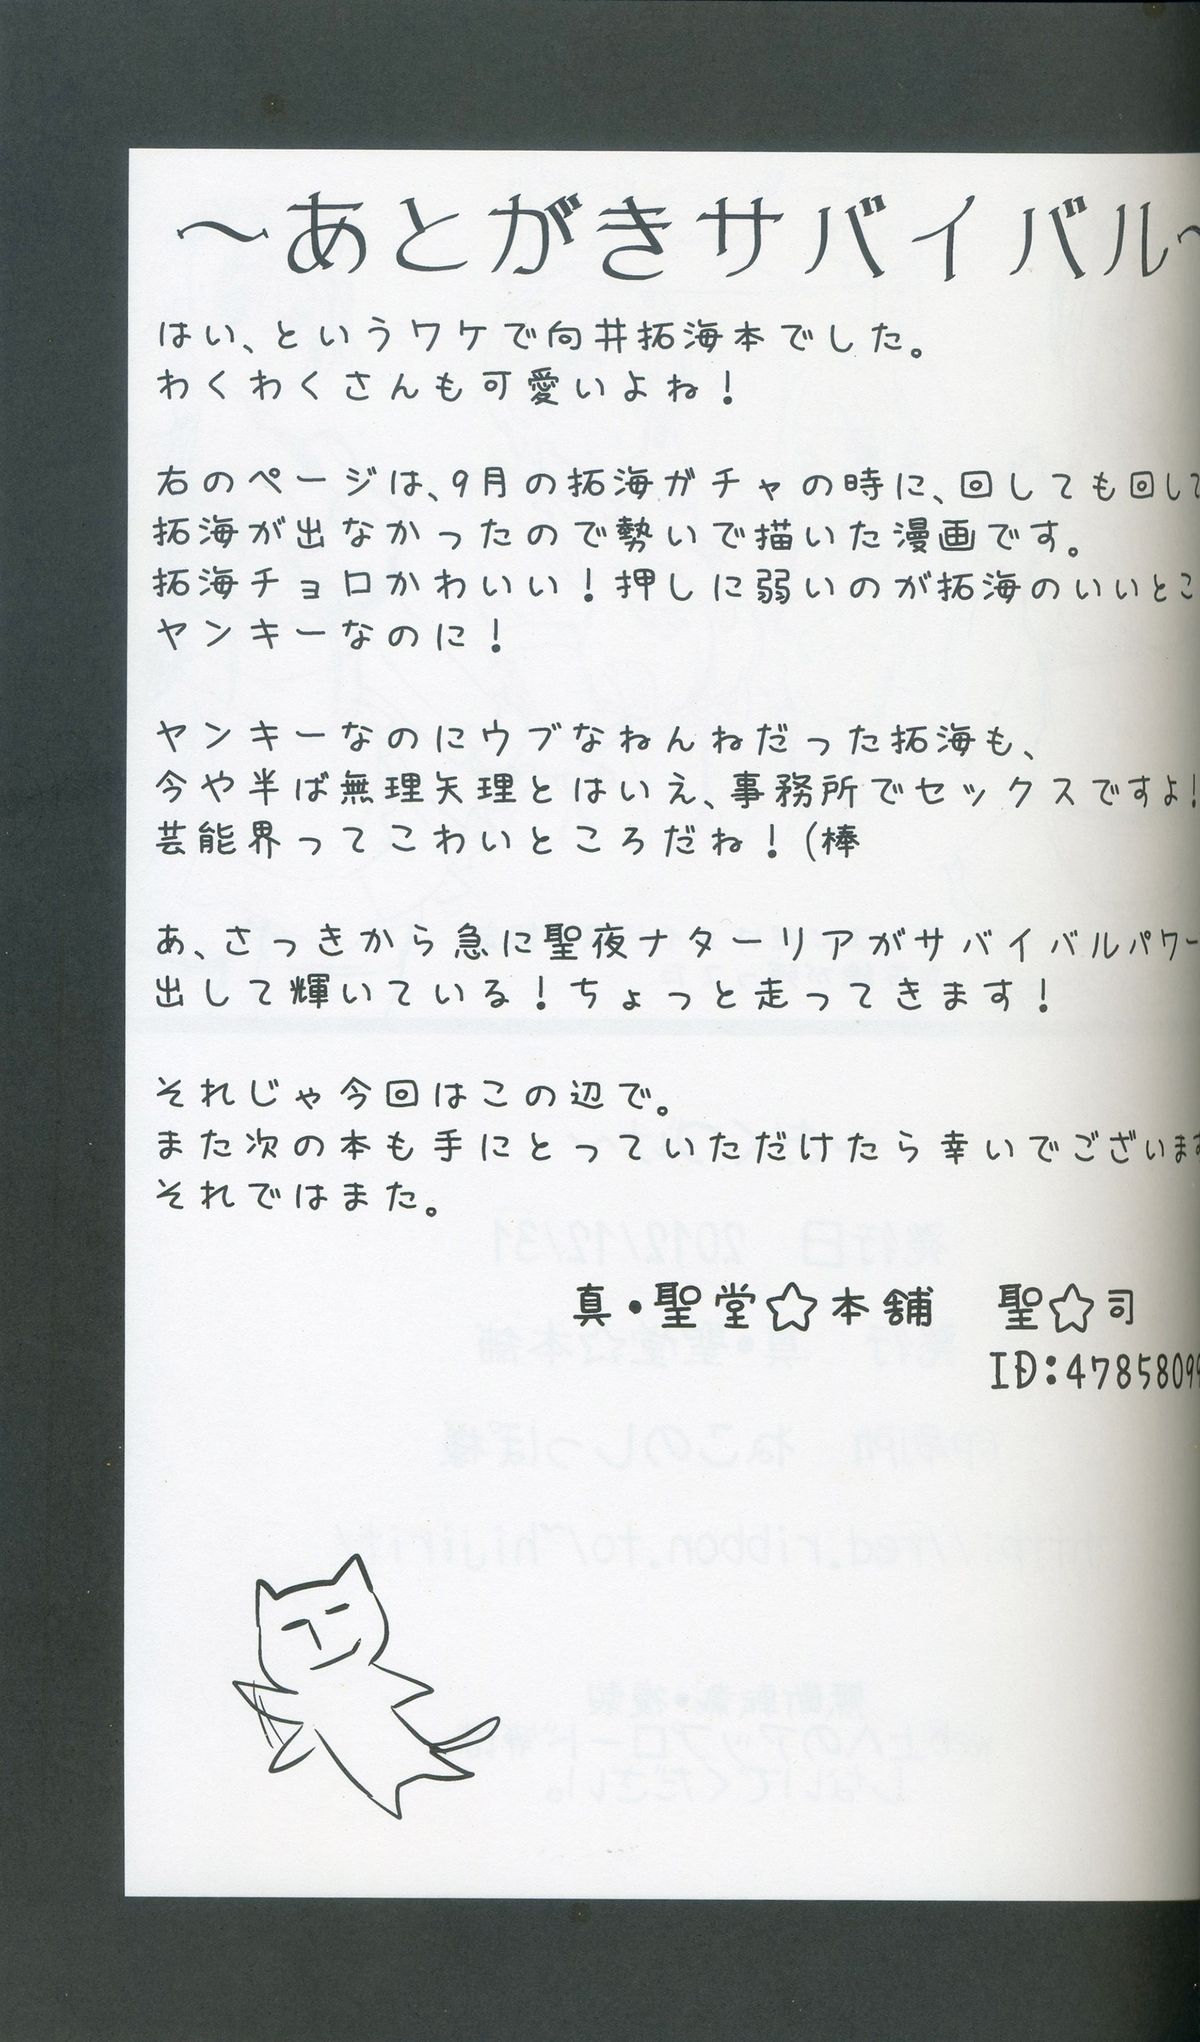 ～あとがきサバイバル～
はい、というワケで向井拓海本でした。
わくわくさんも可愛いよね！
右のページは、9月の拓海ガチャの時に、回しても回して
拓海が出なかったので勢いで描いた漫画です。
拓海チョロかわいい！押しに弱いのが拓海のいいとこ
ヤンキーなのに！
ヤンキーなのにウブなねんねだった拓海も、
今や半ば無理矢理とはいえ、事務所でセックスですよ！
芸能界ってこわいところだね！(棒
あ、さっきから急に聖夜ナターリアがサバイバルパワー
出して輝いている！ちょっと走ってきます！
それじゃ今回はこの辺で。
また次の本も手にとっていただけたら幸いでございます
それではまた。
真・聖堂☆本舗　聖☆司
ID:47858099
発行日　2012/12/31
発行　真・聖堂☆本舗
印刷所　ねこのしっぽ様
http://red.ribbon.to/~hijirit/
無断転載・複製
上へのアップロード等は
しないでください。